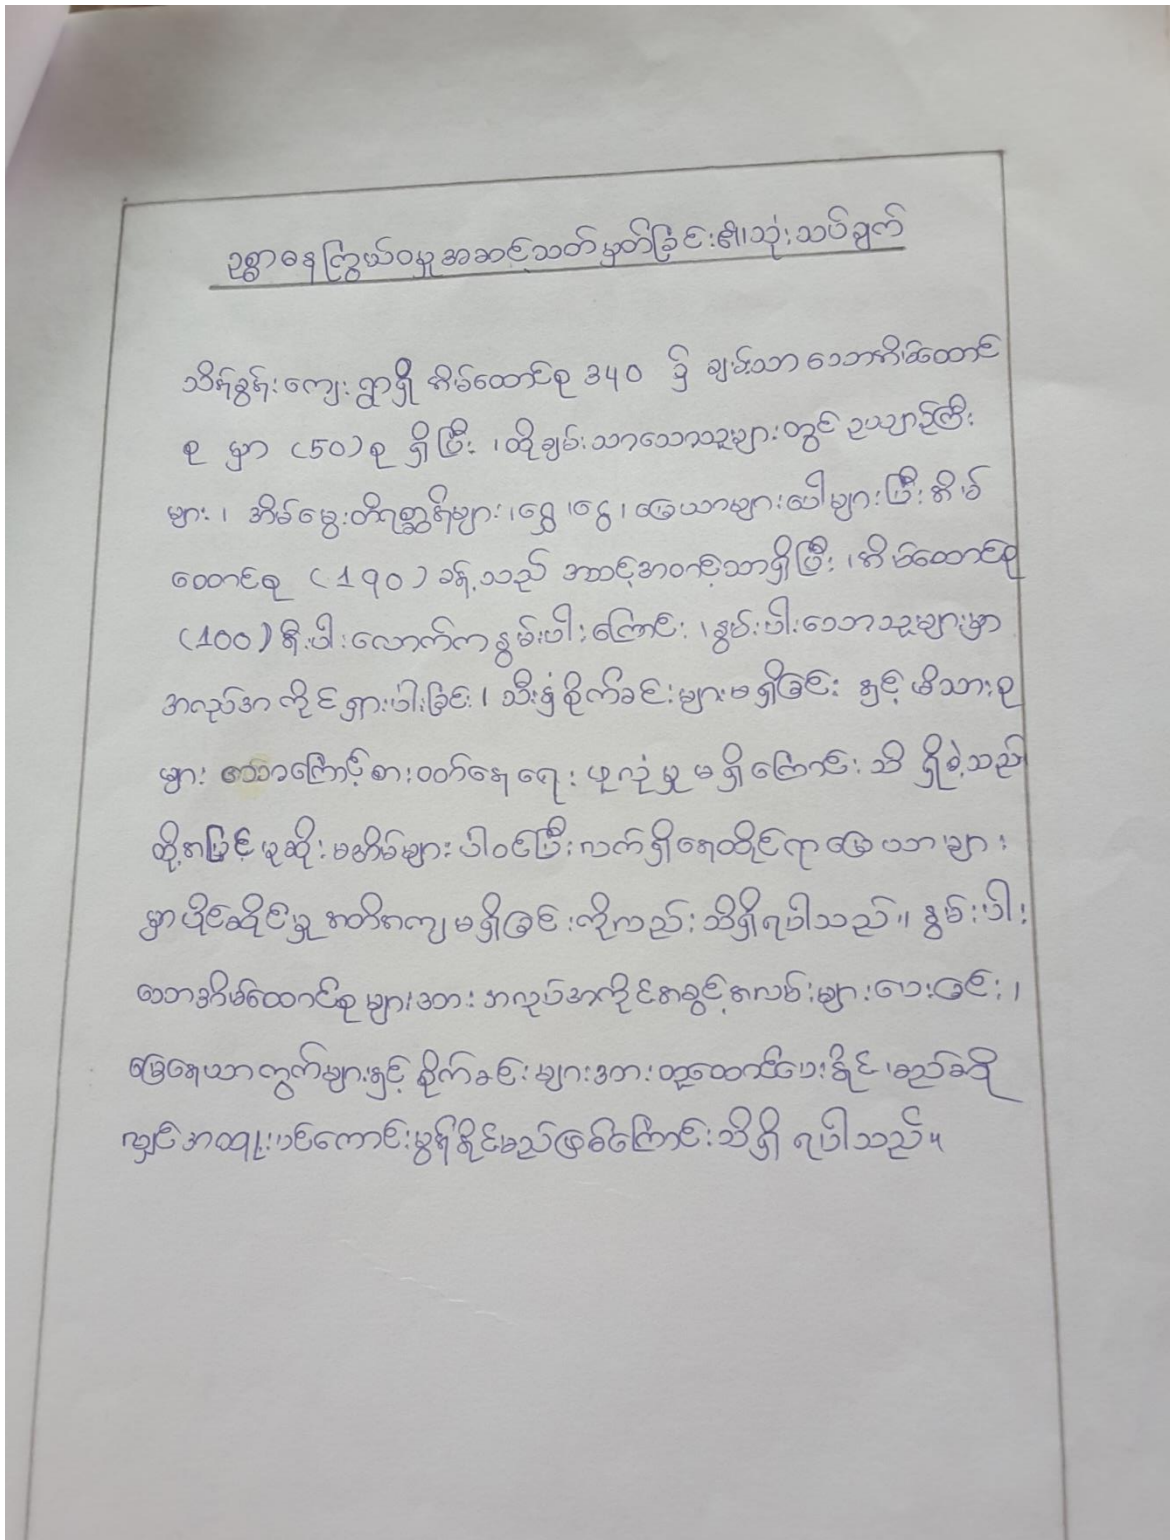 ဥစ္စာဓနကြွယ်ဝမှုအဆင့်သတ်မှတ်ခြင်း၏သုံးသပ်ချက်
သိန်ခွန်းကျေးရွာရှိ အိမ်ထောင်စု 340 ၌ ချမ်းသာသောအိမ်ထောင်
စု မှာ (50) စု ရှိပြီး ၊ ထိုချမ်းသာသောသူများတွင် ဥယျာဉ်ကြီး
များ ၊ အိမ်မွေးတိရစ္ဆာန်များ ၊ရွှေ ၊ငွေ ၊ မြေယာများပေါများပြီး အိမ်
ထောင်စု (190) ခန့်သည် အသင့်အတင့်သာရှိပြီး ၊အိမ်ထောင်စု
(100) နီးပါးလောက်ကနွမ်းပါးကြောင်း ၊နွမ်းပါးသောသူများမှာ
အလုပ်အကိုင်ရှားပါးခြင်း ၊ သီးနှံစိုက်ခင်းများမရှိခြင်း နှင့် မိသားစု
များ သောကြောင့်စားဝတ်နေရေး ဖူလုံမှု မရှိကြောင်း သိ ရှိခဲ့သည်
ထို့အပြင် မုဆိုးမအိမ်များ ပါဝင်ပြီးလက်ရှိနေထိုင်ရာမြေယာများ
မှာပိုင်ဆိုင်မှု အတိအကျမရှိခြင်းကိုလည်းသိရှိရပါသည်။ နွမ်းပါး
သောအိမ်ထောင်စုများအား အလုပ်အကိုင်အခွင့်အလမ်းများပေးခြင်း ၊
မြေနေယာကွက်များနှင့် စိုက်ခင်းများအားထူထောင်ပေးနိုင် မည်ဆို
လျှင်အထူးပင်ကောင်းမွန်နိုင်မည်ဖြစ်ကြောင်းသိရှိ ရပါသည်။